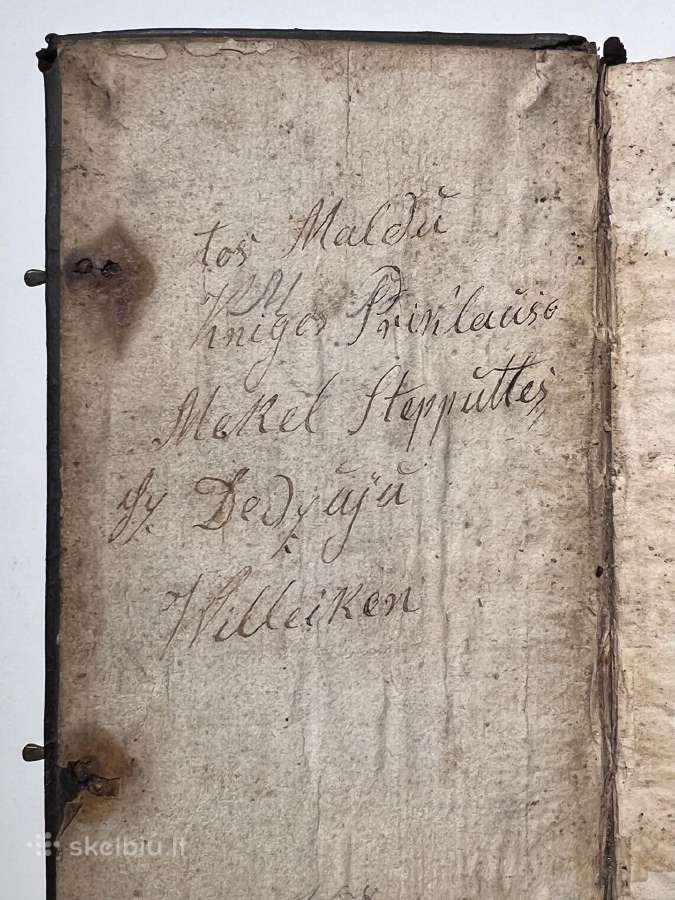 tos Maldŭ
Knigos Priklauso
Mekel Steppŭttes
Iz Dedzŭjŭ
Willeiken
skelbiu.lt